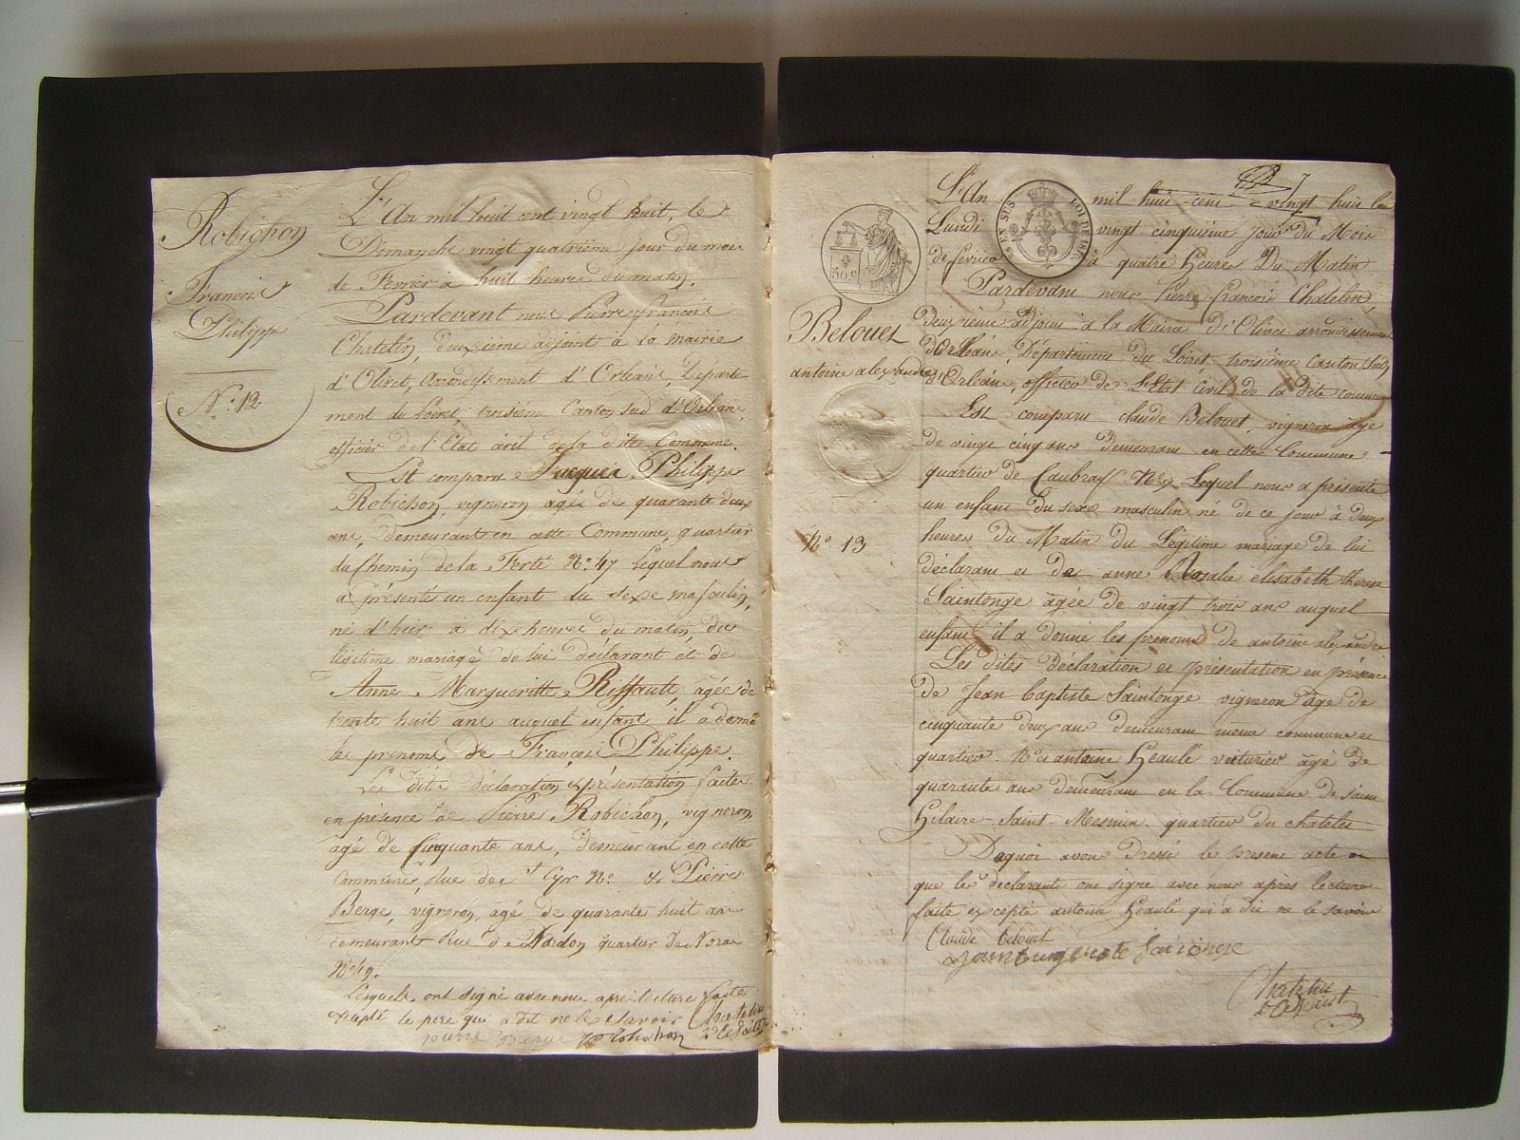 Robichon
François
Philippe
N.º 12
L'An mil huit cent vingt huit, le
Dimanche vingt quatrième jour du mois
de Fevrier à huit heures du matin.
Pardevant nous Pierre françois
Chatelin, deuxième adjoint à la mairie
d'Olivet, Arrondissement d'Orléans, Départe
ment du Loiret, troisième Canton sud d'Orléans
officier de l'Etat civil de la dite Commune.
Est comparu Jacques Philippe
Robichon, vigneron, agé de quarante deux
ans, demeurant en cette Commune, quartier
du Chemin de la Ferté N.º 47 Lequel nous
a présenté un enfant du sexe masculin,
né d'hier à dix heures du matin, du
légitime mariage de lui déclarant et de
Anne Margueritte Riffault, agée de
trente huit ans auquel enfant il a donné
les prenoms de François Philippe.
Les dites déclaration et présentation faites
en présence de Pierre Robichon, vigneron,
agé de cinquante ans, demeurant en cette
Commune, Rue de St Cyr N.º & Pierre
Berge, vigneron, agé de quarante huit ans
demeurant Rue de
Lesquels ont signé avec nous après lecture faite
excepté le pere qui a dit ne le savoir
pierre Berge Robichon
EN SUS
LOI DE
50 c
Belouet
antoine alexandre
N.º 13
L'An mil huit cent vingt huit le
Lundi vingt cinquième jour du Mois
de fevrier à quatre heures du Matin
Pardevant nous Pierre françois Chatelin,
deuxième adjoint à la Mairie d'Olivet arrondissement
d'Orléans, Département du Loiret, troisième canton Sud
d'Orléans, officier de l'Etat Civil de la dite commune
Est comparu claude Belouet, vigneron agé
de vingt cinq ans demeurant en cette Commune
quartier de Caubray N.º Lequel nous a présenté
un enfant du sexe masculin né de ce jour à deux
heures du Matin du Légitime mariage de lui
déclarant et de anne Rosalie elisabeth therese
Saintonge agée de vingt trois ans auquel
enfant il a donné les prenoms de antoine alexandre
Les dites déclaration et présentation en présence
de Jean baptiste Saintonge vigneron agé de
cinquante deux ans demeurant même commune et
quartier N.º et antoine Heaulé voiturier agé de
quarante ans demeurant en la Commune de saint
Hilaire-Saint-Mesmin quartier du chatelet
Dequoi avons dressé le present acte
que les déclarants ont signé avec nous apres lecture
faite excepté antoine Heaulé qui a dit ne le savoir
Claude belouet
Chatelin
adjoint